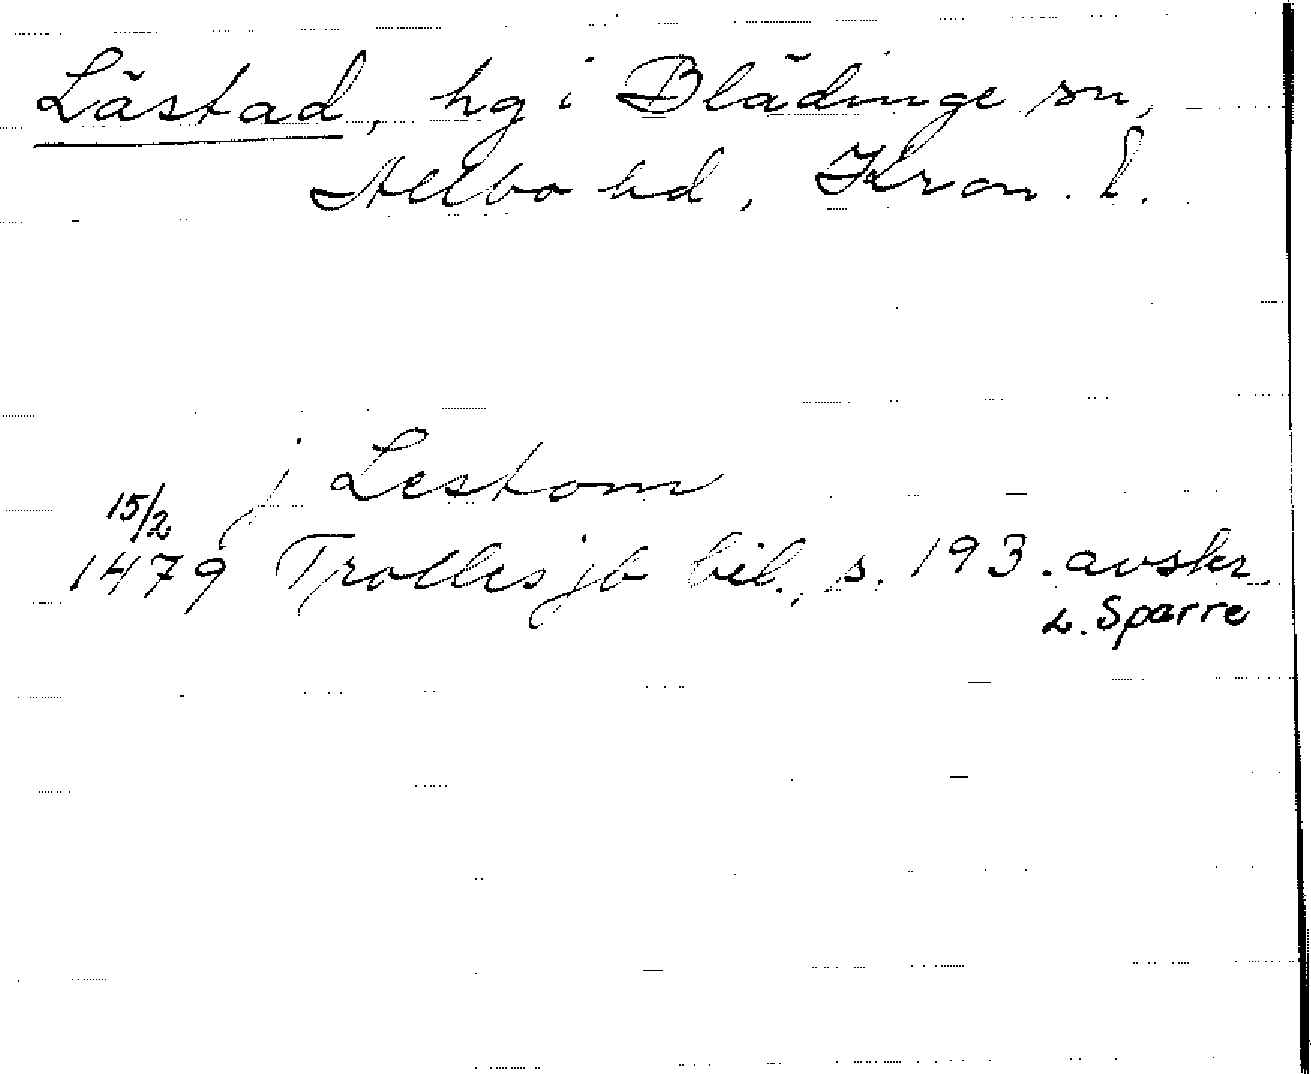 Lästad, hg i Blädinge sn,
Allbo hd, Kron. l.
j Lestom
15/2
1479 Trollesjb bil., s. 193. avskr.
L. Sparre